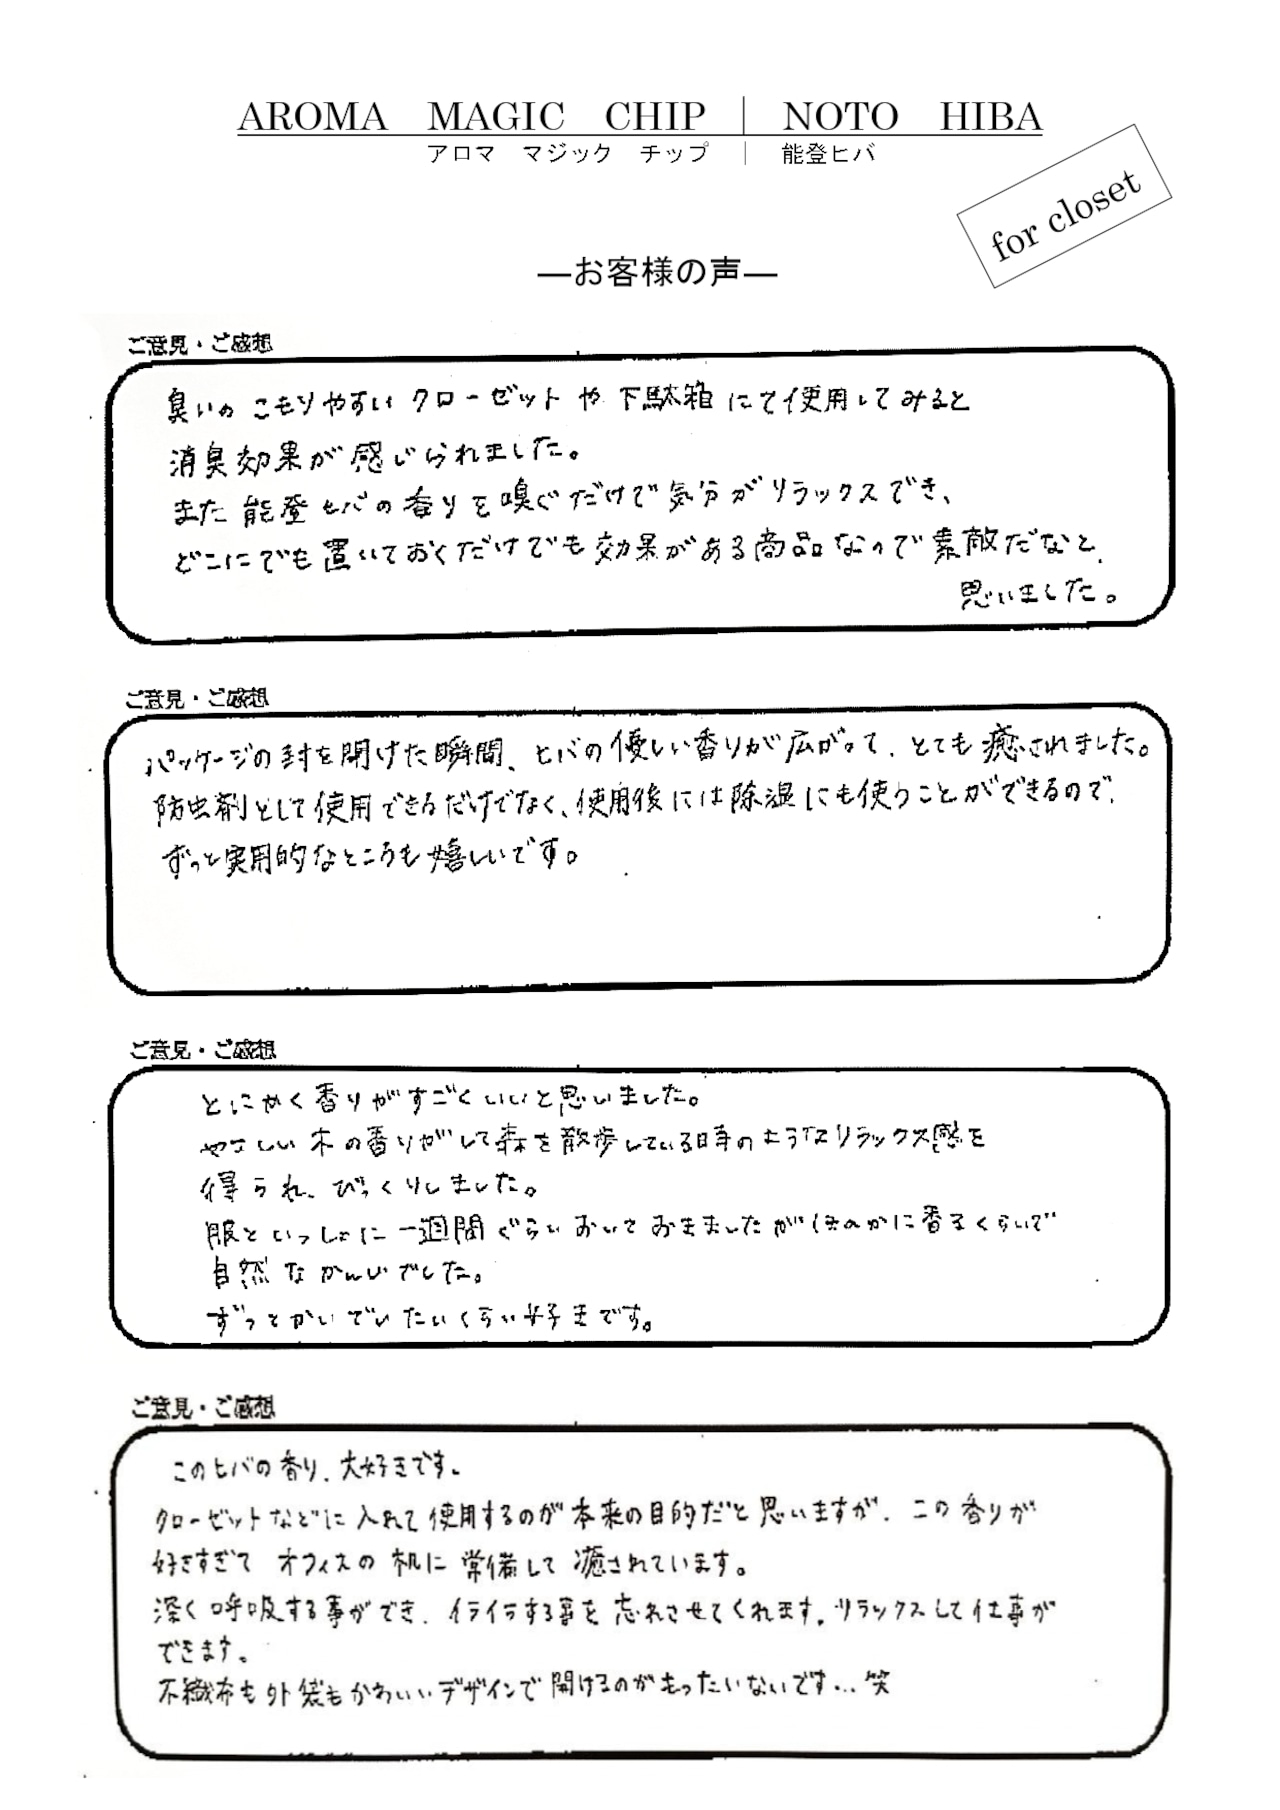 AROMA MAGIC CHIP | NOTO HIBA
アロマ マジック チップ | 能登ヒバ
for closet
―お客様の声―
ご意見・ご感想
臭いのこもりやすいクローゼットや下駄箱にて使用してみると
消臭効果が感じられました。
また能登ヒバの香りを嗅ぐだけで気分がリラックスでき、
どこにでも置いておくだけでも効果がある商品なので素敵だなと、
思いました。
ご意見・ご感想
パッケージの封を開けた瞬間、ヒバの優しい香りが広がって、とても癒されました。
防虫剤として使用できるだけでなく、使用後には除湿にも使うことができるので、
ずっと実用的なところも嬉しいです。
ご意見・ご感想
とにかく香りがすごくいいと思いました。
やさしい木の香りがして森を散歩している時のようなリラックス感を
得られ、びっくりしました。
服といっしょに一週間ぐらいおいておきましたがほのかに香るくらいで
自然なかんじでした。
ずっとかいでいたいくらい好きです。
ご意見・ご感想
このヒバの香り、大好きです。
クローゼットなどに入れて使用するのが本来の目的だと思いますが、この香りが
好きすぎてオフィスの机に常備して癒されています。
深く呼吸する事ができ、イライラする事を忘れさせてくれます。リラックスして仕事が
できます。
不織布も外袋もかわいいデザインで開けるのがもったいないです…笑